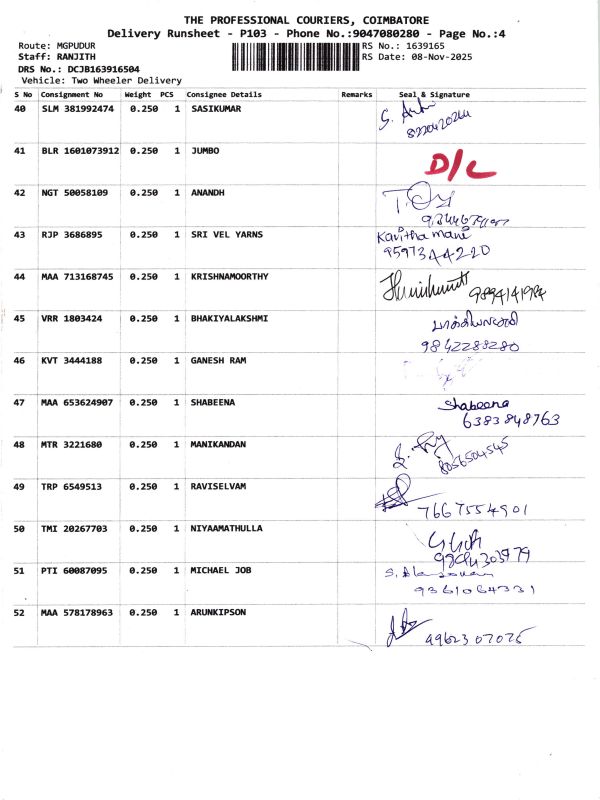 THE PROFESSIONAL COURIERS, COIMBATORE
Delivery Runsheet - P103 - Phone No.:9047080280 - Page No.:4
Route: MGPUDUR RS No.: 1639165
Staff: RANJITH RS Date: 08-Nov-2025
DRS No.: DCJB163916504
Vehicle: Two Wheeler Delivery
S No Consignment No Weight PCS Consignee Details Remarks Seal & Signature
40 SLM 381992474 0.250 1 SASIKUMAR
41 BLR 1601073912 0.250 1 JUMBO D/C
42 NGT 50058109 0.250 1 ANANDH
43 RJP 3686895 0.250 1 SRI VEL YARNS Kavitha mani
9597344220
44 MAA 713168745 0.250 1 KRISHNAMOORTHY 9894141984
45 VRR 1803424 0.250 1 BHAKIYALAKSHMI பாக்கியலட்சுமி
9842288280
46 KVT 3444188 0.250 1 GANESH RAM
47 MAA 653624907 0.250 1 SHABEENA Shabeena
6383848763
48 MTR 3221680 0.250 1 MANIKANDAN 8056504545
49 TRP 6549513 0.250 1 RAVISELVAM 7667554901
50 TMI 20267703 0.250 1 NIYAAMATHULLA
51 PTI 60087095 0.250 1 MICHAEL JOB
9361064331
52 MAA 578178963 0.250 1 ARUNKIPSON